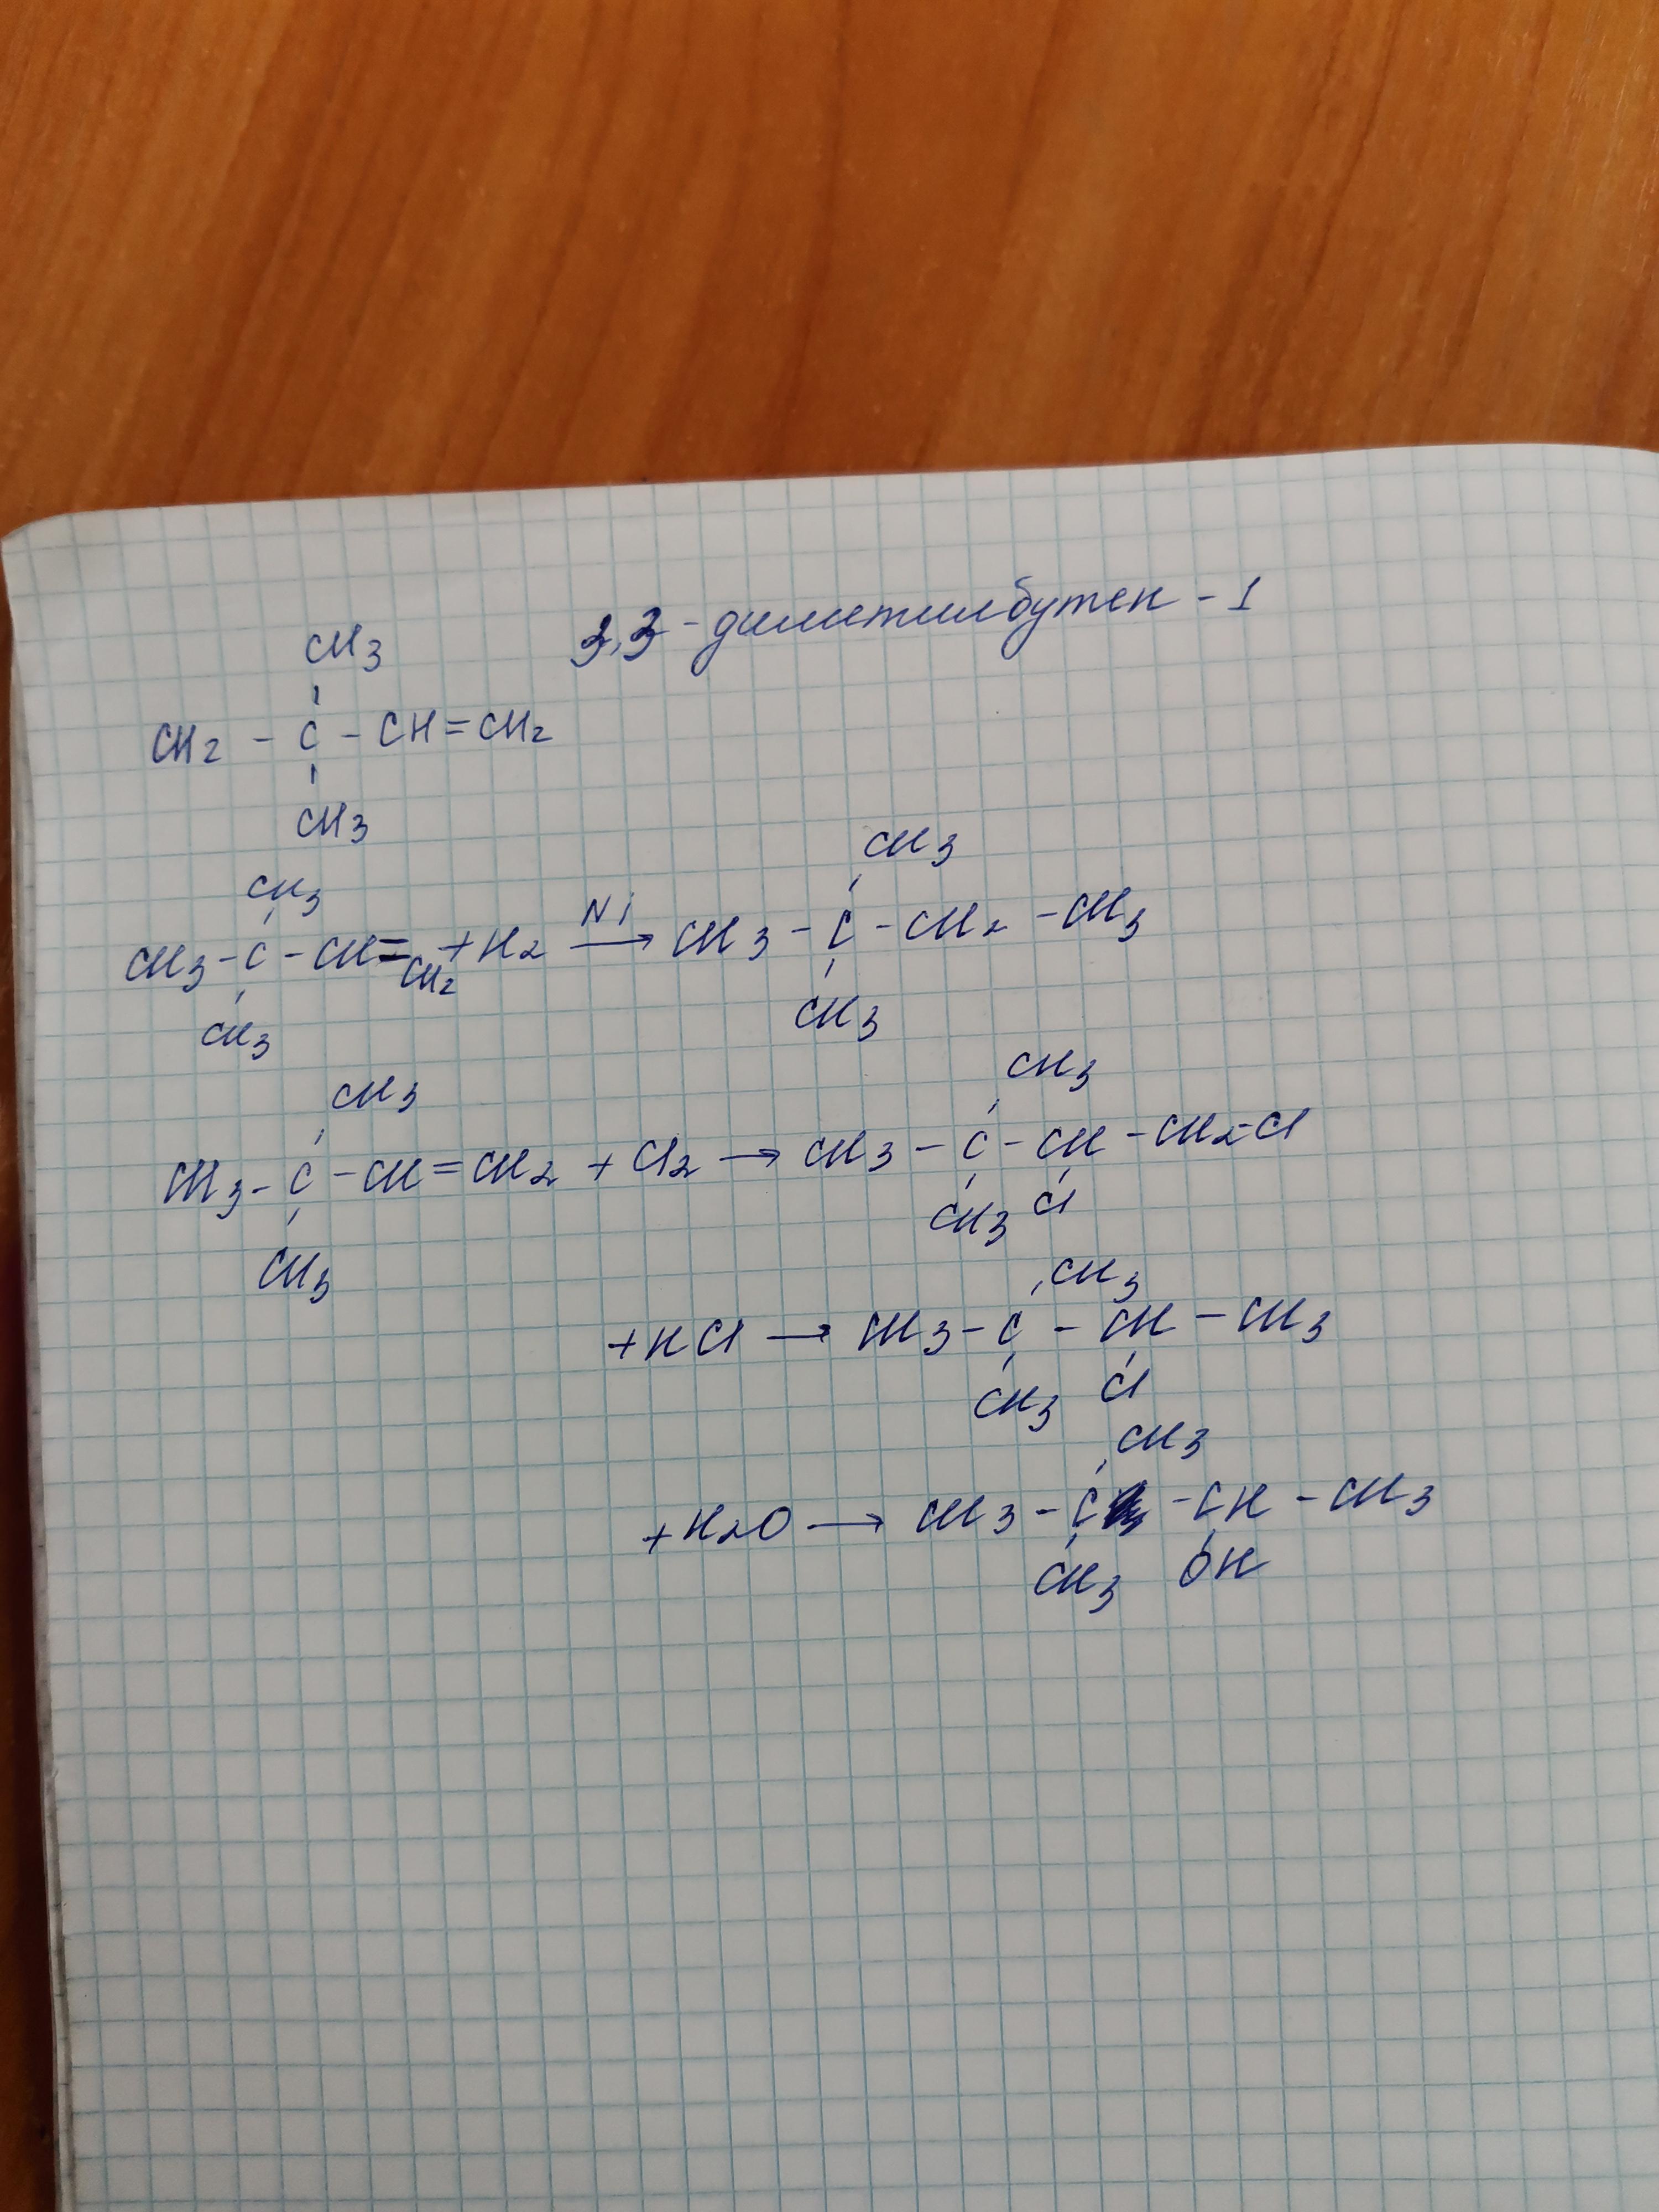 3,3-диметилбутен-1
CH3
CH2 - C - CH=CH2
CH3
CH3
CH3
CH3 - C - CH= CH2 + H2 Ni → CH3 - C - CH2 - CH3
CH3
CH3
CH3
CH3
CH3 - C - CH=CH2 + Cl2 → CH3 - C - CH - CH2-Cl
CH3 Cl
CH3
CH3
+HCl → CH3 - C - CH - CH3
CH3 Cl
CH3
+H2O → CH3 - C - CH - CH3
CH3 OH